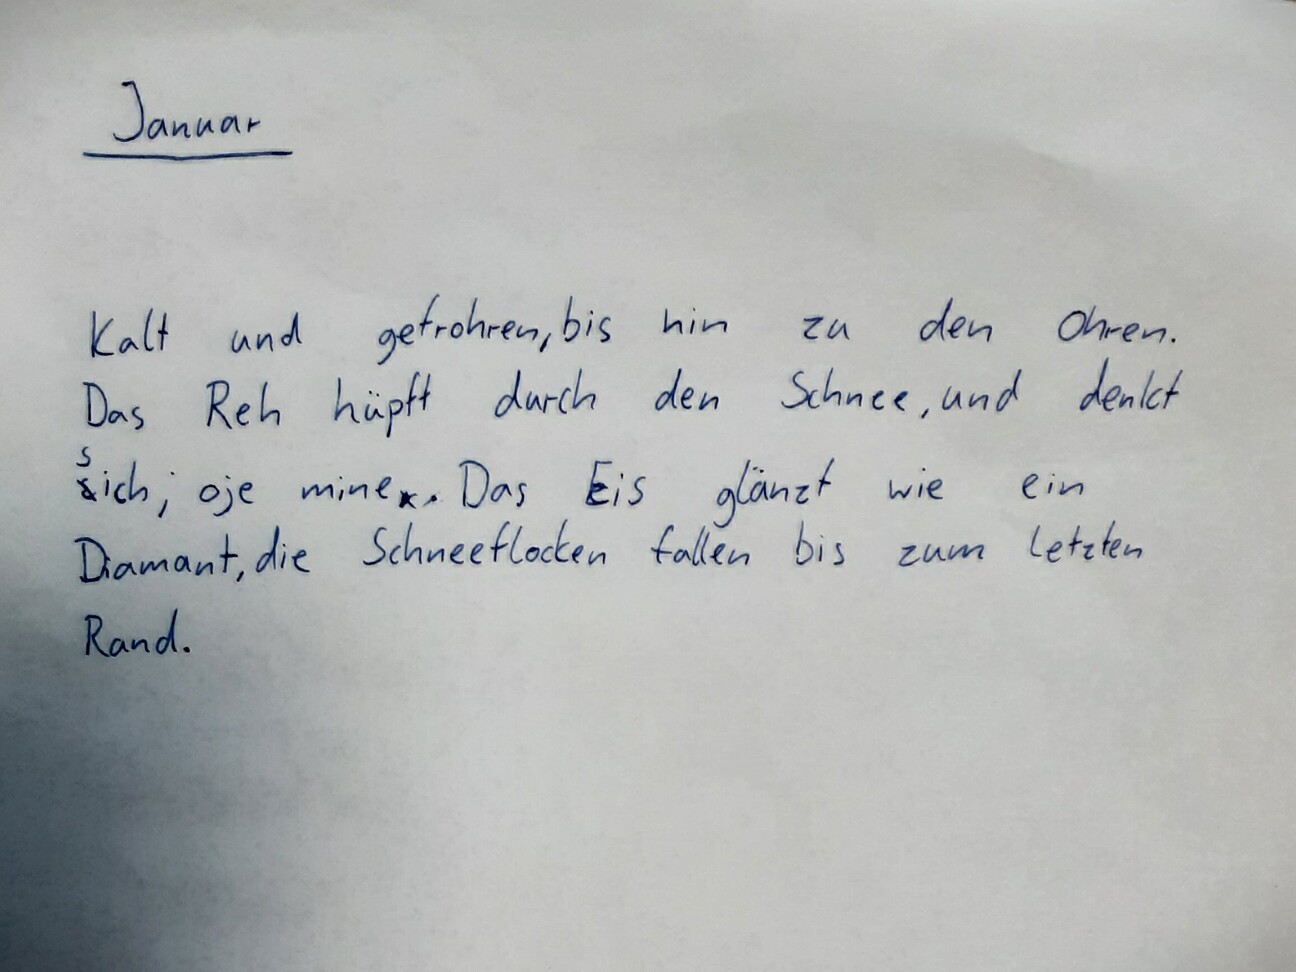 Januar
Kalt und gefrohren, bis hin zu den Ohren.
Das Reh hüpft durch den Schnee, und denkt
sich; oje mine. Das Eis glänzt wie ein
Diamant, die Schneeflocken fallen bis zum letzten
Rand.